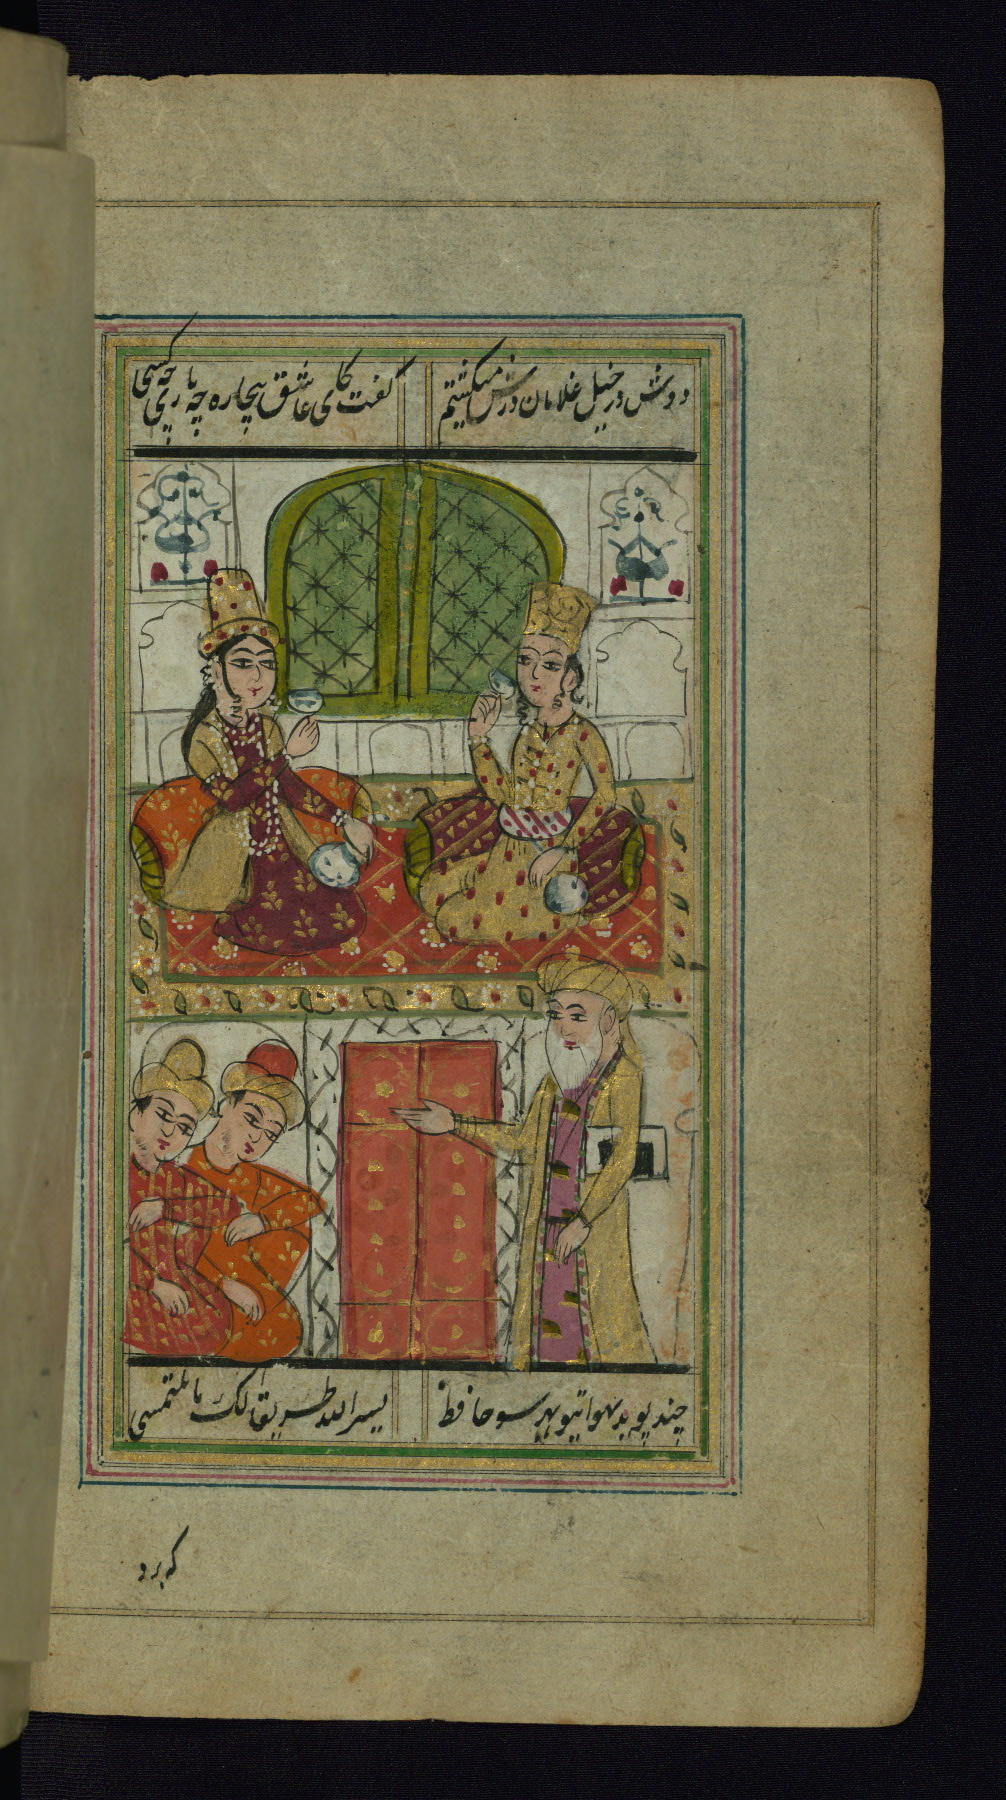 دوش در خیل غلامان درش میگذشتم
گفت کای عاشق بیچاره چه یاری چه کسی
چند پوید بهوای تو بهر سو حافظ
یسر الله طریقا لک یا ملتمسی
که برد